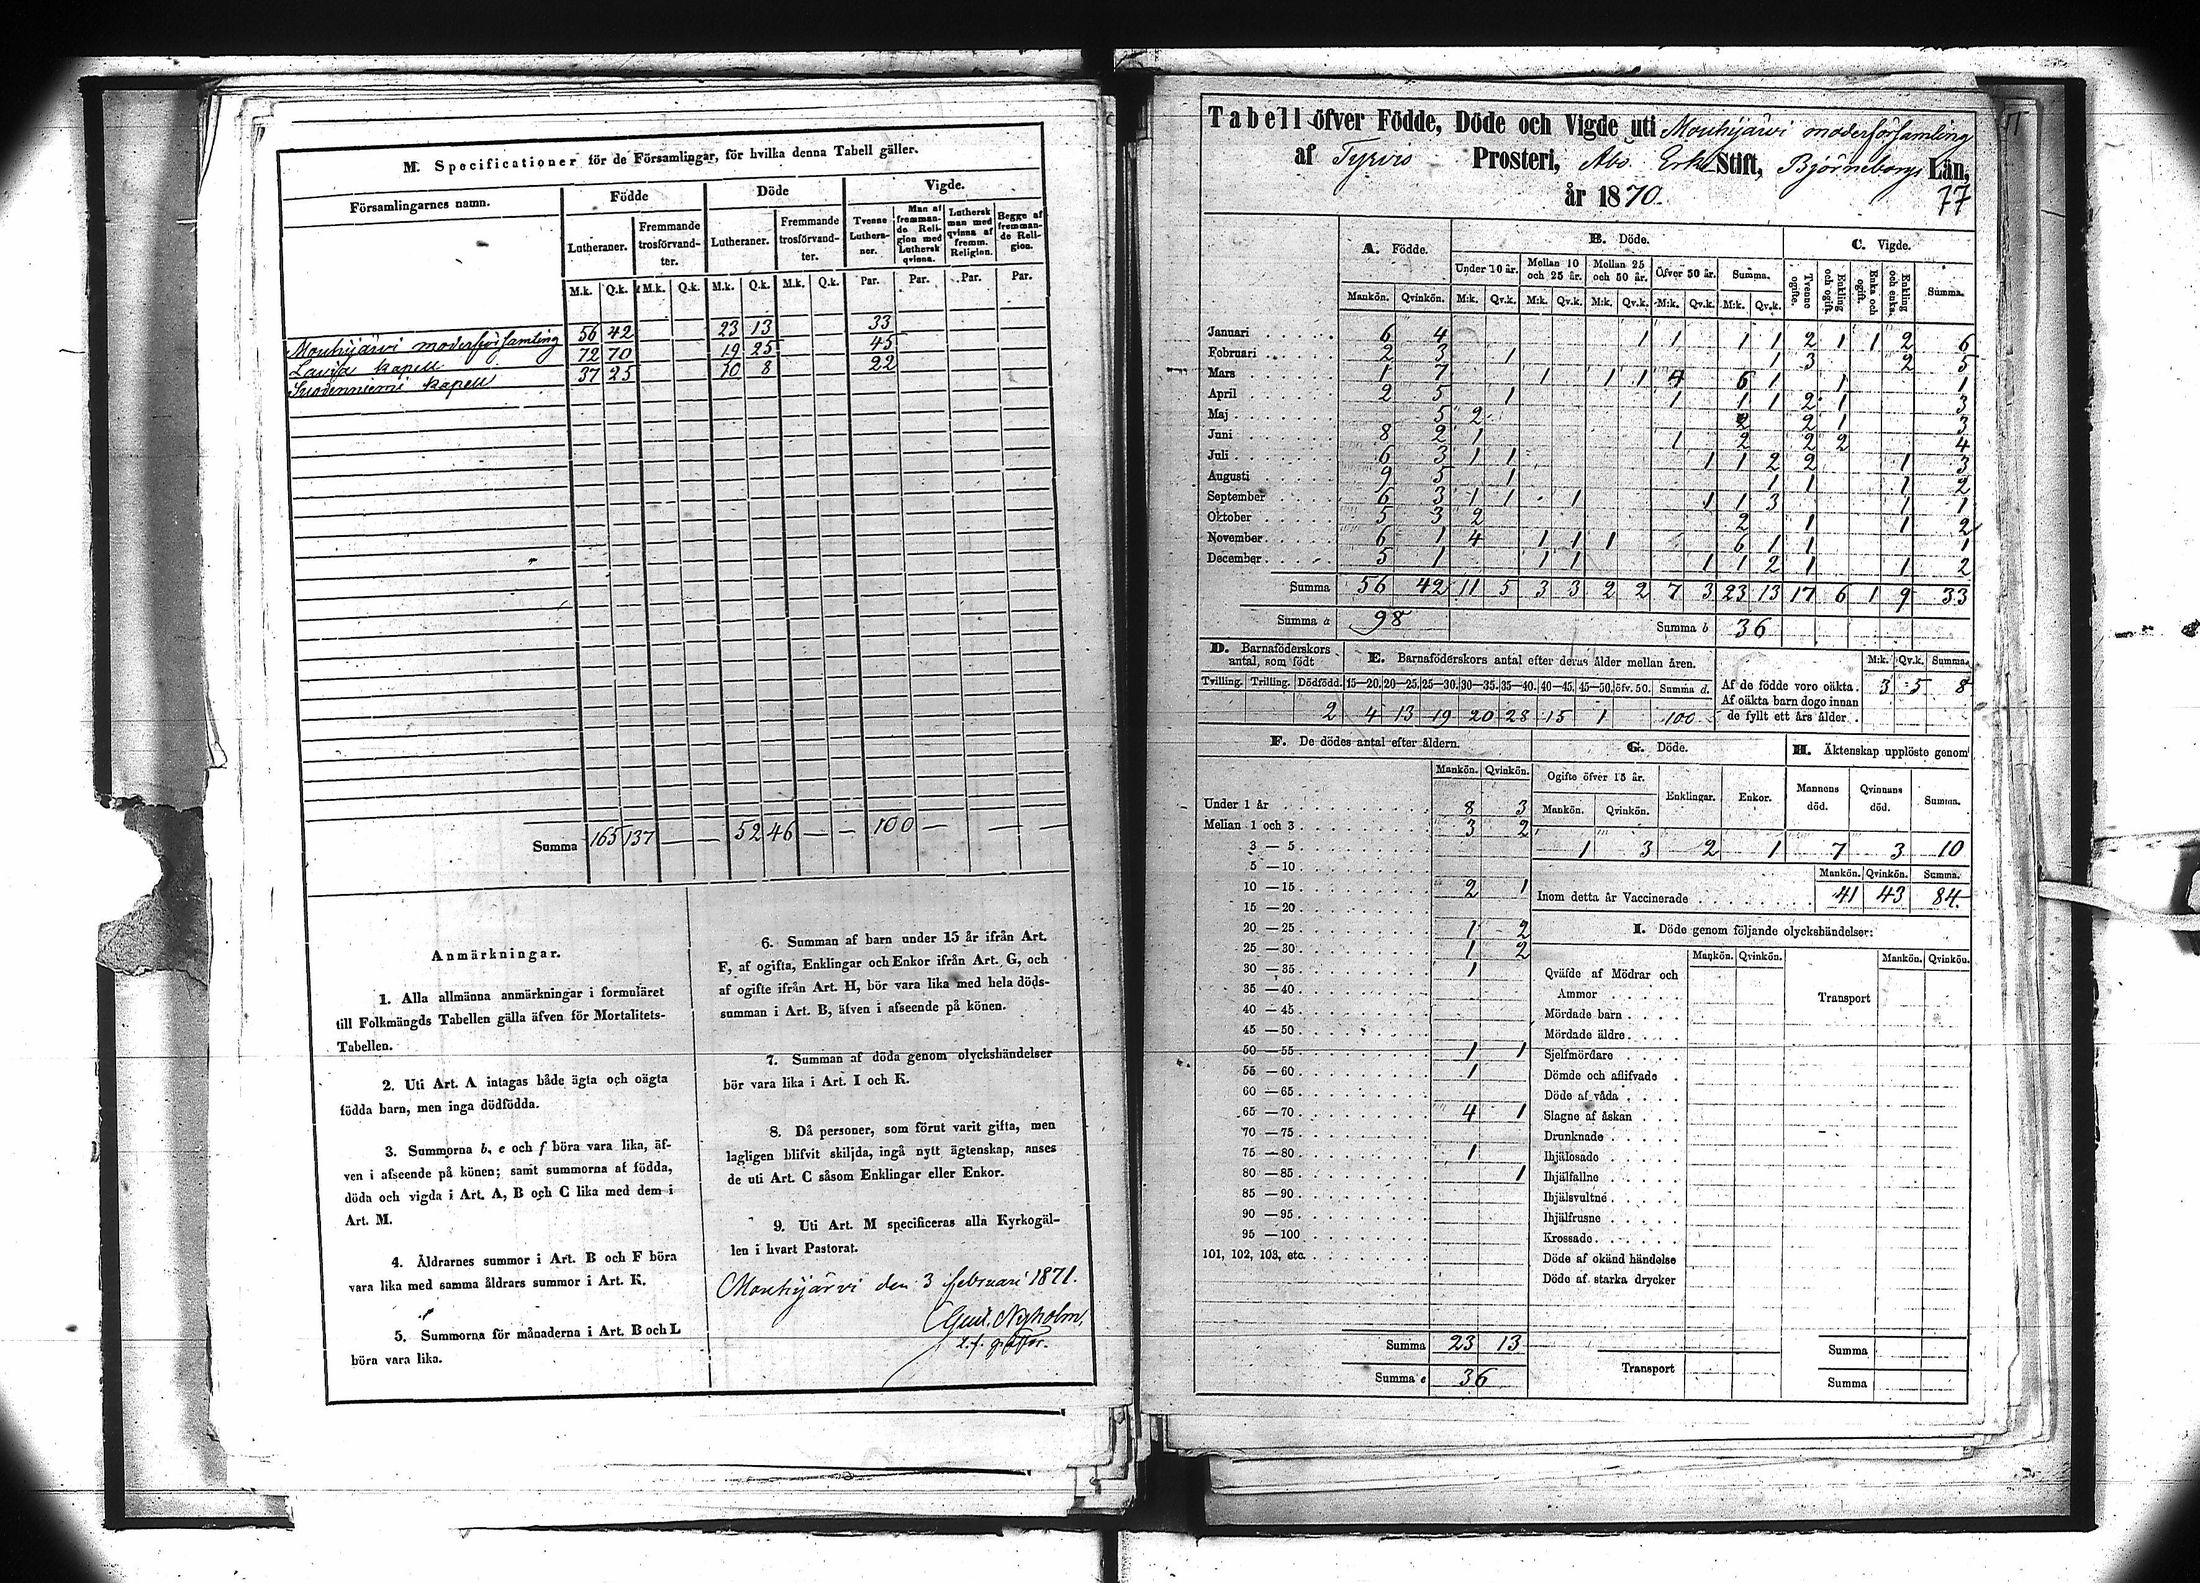 M. Specificationer för de Församlingar, för hvilka denna Tabell gäller.
Församlingarnes namn. Födde Döde Vigde.
Lutheraner. Fremmande trosförvandter. Lutheraner. Fremmande trosförvandter. Tvenne Lutheraner. Man af fremmande Religion med Luthersk qvinna. Luthersk man med qvinna af fremm. Religion. Begge af fremmande Religion.
M.k. Q.k. M.k. Q.k. M.k. Q.k. M.k. Q.k. Par. Par. Par. Par.
Mouhijärvi moderförsamling 56 42 23 13 33
Lavia kapell 72 70 19 25 45
Suodenniemi kapell 37 25 10 8 22
Summa 165 137 — — 52 46 — — 100 — — —
Anmärkningar.
1. Alla allmänna anmärkningar i formuläret
till Folkmängds Tabellen gälla äfven för Mortalitets-
Tabellen.
2. Uti Art. A intagas både ägta och oägta
födda barn, men inga dödfödda.
3. Summorna b, e och f böra vara lika, äf-
ven i afseende på könen; samt summorna af födda,
döda och vigda i Art. A, B och C lika med dem i
Art. M.
4. Åldrarnes summor i Art. B och F böra
vara lika med samma åldrars summor i Art. K.
5. Summorna för månaderna i Art. B och L
böra vara lika.
6. Summan af barn under 15 år ifrån Art.
F, af ogifta, Enklingar och Enkor ifrån Art. G, och
af ogifte ifrån Art. H, bör vara lika med hela döds-
summan i Art. B, äfven i afseende på könen.
7. Summan af döda genom olyckshändelser
bör vara lika i Art. I och K.
8. Då personer, som förut varit gifta, men
lagligen blifvit skiljda, ingå nytt ägtenskap, anses
de uti Art. C såsom Enklingar eller Enkor.
9. Uti Art. M specificeras alla Kyrkogäl-
len i hvart Pastorat.
Mouhijärvi den 3 februari 1871.
Gust. Nyholm,
Tabell öfver Födde, Döde och Vigde uti Mouhijärvi moderförsamling
af Tyrvis Prosteri, Åbo Erke Stift, Björneborgs Län,
år 1870. 77
A. Födde. B. Döde. C. Vigde.
Under 10 år. Mellan 10 och 25 år. Mellan 25 och 50 år. Öfver 50 år. Summa. Tvenne ogifte. Enkling och ogift. Enka och ogift. Enkling och enka. Summa.
Mankön. Qvinkön. M:k. Qv.k. M:k. Qv.k. M:k. Qv.k. M:k. Qv.k. M:k. Qv.k.
Januari 6 4 1 1 1 1 2 1 1 2 6
Februari 2 3 1 1 3 2 5
Mars 1 7 1 1 1 4 6 1 1 1
April 2 5 1 1 1 1 2 1 3
Maj 5 2 2 2 1 3
Juni 8 2 1 1 2 2 2 4
Juli 6 3 1 1 1 1 2 2 1 3
Augusti 9 5 1 1 1 1 2
September 6 3 1 1 1 1 1 3 1 1
Oktober 5 3 2 2 1 1 2
November 6 1 4 1 1 1 6 1 1 1
December 5 1 1 1 1 1 2 1 1 2
Summa 56 42 11 5 3 3 2 2 7 3 23 13 17 6 1 9 33
Summa a 98 Summa b 36
D. Barnaföderskors antal, som födt E. Barnaföderskors antal efter deras ålder mellan åren. M:k. Qv.k. Summa.
Tvilling. Trilling. Dödfödd. 15—20. 20—25. 25—30. 30—35. 35—40. 40—45. 45—50. öfv. 50. Summa d.
2 4 13 19 20 28 15 1 100
Af de födde voro oäkta. 3 5 8
Af oäkta barn dogo innan
de fyllt ett års ålder.
F. De dödes antal efter åldern.
Mankön. Qvinkön.
Under 1 år 8 3
Mellan 1 och 3 3 2
3 — 5
5 — 10
10 — 15 2 1
15 — 20
20 — 25 1 2
25 — 30 1 2
30 — 35 1
35 — 40
40 — 45
45 — 50
50 — 55 1 1
55 — 60 1
60 — 65
65 — 70 4 1
70 — 75
75 — 80 1
80 — 85 1
85 — 90
90 — 95
95 — 100
101, 102, 103, etc.
Summa 23 13
Summa e 36
G. Döde.
Ogifte öfver 15 år. Enklingar. Enkor.
Mankön. Qvinkön.
1 3 2 1
H. Äktenskap upplöste genom
Mannens död. Qvinnans död. Summa.
7 3 10
Mankön. Qvinkön. Summa.
Inom detta år Vaccinerade 41 43 84.
I. Döde genom följande olyckshändelser:
Mankön. Qvinkön. Mankön. Qvinkön.
Qväfde af Mödrar och
Ammor
Transport
Mördade barn
Mördade äldre
Sjelfmördare
Dömde och aflifvade
Döde af våda
Slagne af åskan
Drunknade
Ihjälosade
Ihjälfallne
Ihjälsvultne
Ihjälfrusne
Krossade
Döde af okänd händelse
Döde af starka drycker
Transport
Summa
Summa